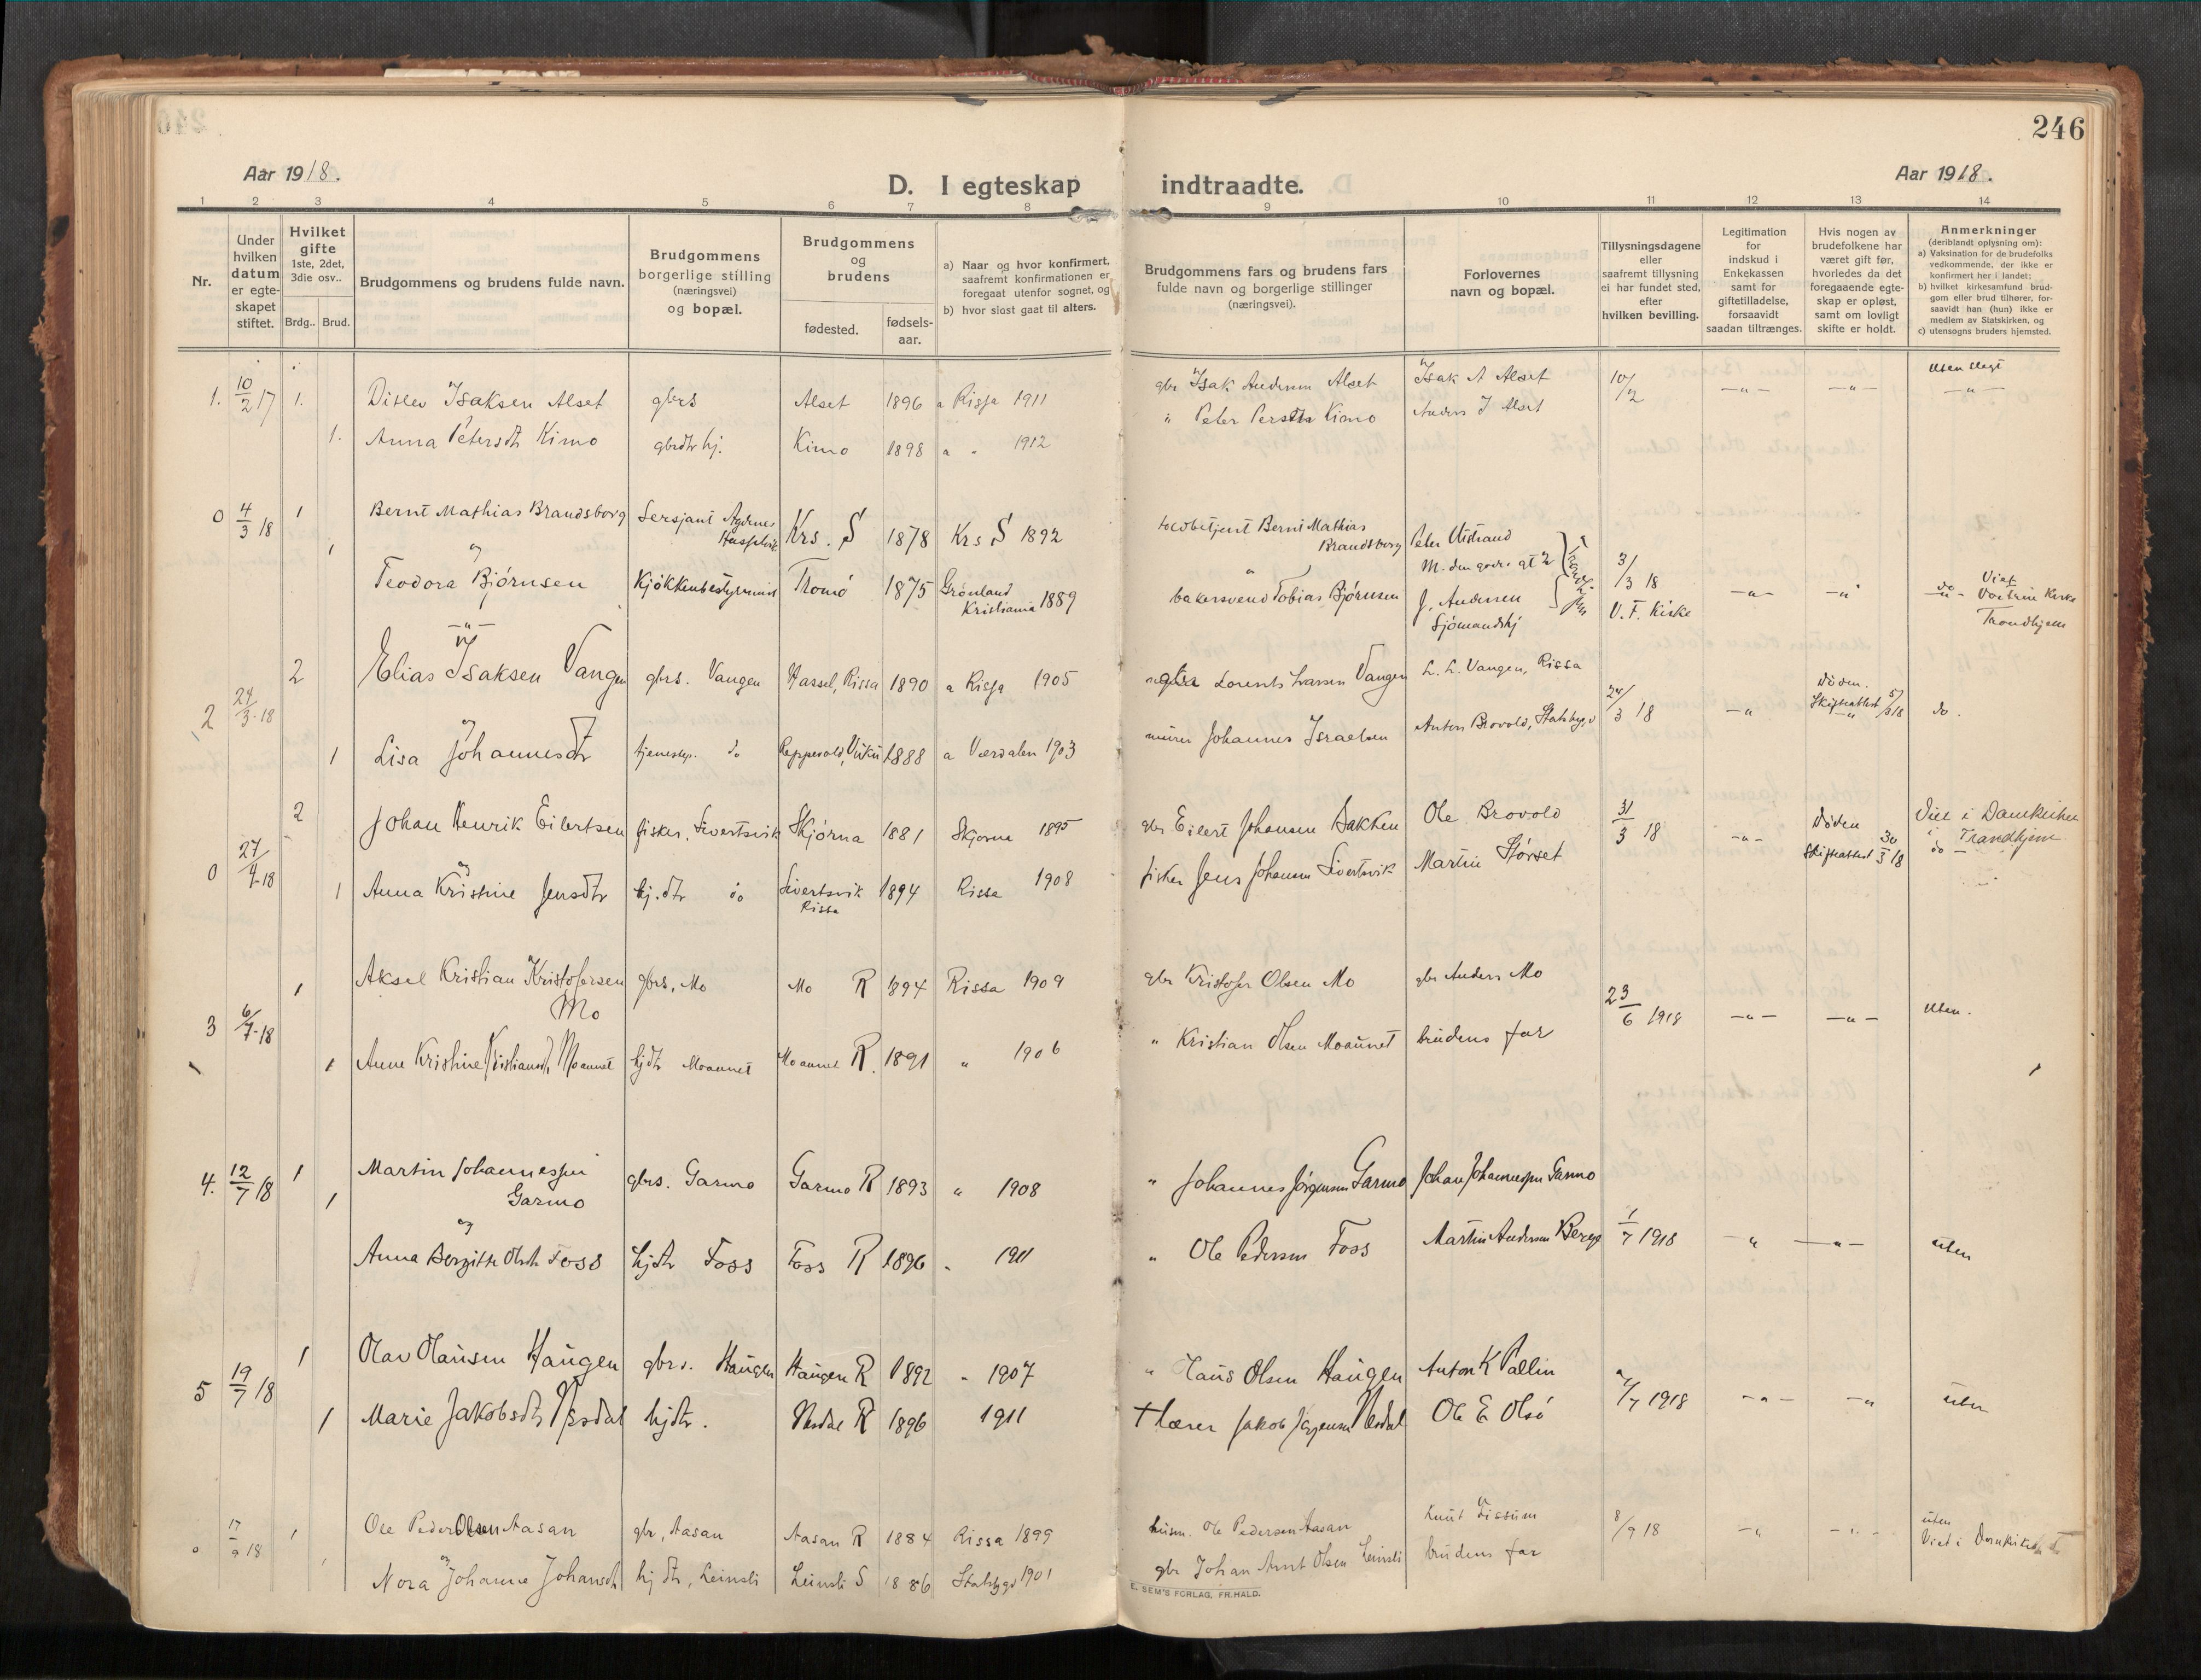 246
Aar 1918.
Aar 1918.
D. I egteskap indtraadte.
1 2 3 4 5 6 7 8 9 10 11 12 13 14
Nr.
Under hvilken datum er egte-skapet stiftet.
Hvilket gifte 1ste, 2det, 3die osv..
Brdg.. Brud.
Brudgommens og brudens fulde navn.
Brudgommens borgerlige stilling (næringsvei) og bopæl.
Brudgommens og brudens
fødested.
fødsels-aar.
a) Naar og hvor konfirmert, saafremt konfirmationen er foregaat utenfor sognet, og
b) hvor sidst gaat til alters.
Brudgommens fars og brudens fars fulde navn og borgerlige stillinger (næringsvei).
Forlovernes navn og bopæl.
Tillysningsdagene eller saafremt tillysning ei har fundet sted, efter hvilken bevilling.
Legitimation for indskud i Enkekassen samt for giftetilladelse, forsaavidt saadan tiltrænges.
Hvis nogen av brudefolkene har været gift før, hvorledes da det foregaaende egte-skap er opløst, samt om lovligt skifte er holdt.
Anmerkninger (deriblandt oplysning om):
a) Vaksination for de brudefolks vedkommende, der ikke er konfirmert her i landet;
b) hvilket kirkesamfund brud-gom eller brud tilhører, for-saavidt han (hun) ikke er medlem av Statskirken, og
c) utensogns bruders hjemsted.
1. 10/2 17 1. Ditlev Isaksen Alset gbrs Alset 1896 a Rissa 1911 gbr Isak Andersen Alset Isak A Alset 10/2 —"— —"— uten slegt —"—
1. Anna Petersdtr Kimo gbrdtr hj. Kimo 1898 a " 1912 " Peter Kimo Anders J Alset
0 4/3 18 1 Bernt Mathias Brandsborg Sersjant Agdenes Hasselvik Krs. S 1878 Krs S 1892 Bernt Mathias Brandsborg Peter Utstrand
1 og Teodora Bjørnsen Tromø 1875 Grønland Kristiania 1889 bakersvend Tobias Bjørnsen J. Andersen Sjømandshj 3/3 18 V. F. Kirke —"— —"— do Viet Trondhjem
2 24/3-18 2 Elias Isaksen Vangen gbrs. Vangen Hassel, Rissa 1890 a Rissa 1905 Lorents Larsen Vangen L. L. Vangen, Rissa 24/3 18 —" Døden. Skifteattest 5/3 18 do.
1 og Lisa Johannesdtr tjenestep. do 1888 a Værdalen 1903 murer Johannes Israelsen Anton Brovold, Stadsbygd
0 27/4-18 2 Johan Henrik Eilertsen fisker, Sivertsvik Skjørna 1881 Skjørna 1895 gbr Eilert Johansen Bakken Ole Brovold 31/3 18 —"— Døden Skifteattest 30/3 18 Viet i Domkirken i Trondhjem do —
1 og Anna Kristine Jensdtr hj.dtr do Sivertsvik Rissa 1894 Rissa 1908 fisker Jens Johansen Sivertsvik Martin Størset
3 6/7-18 1 Aksel Kristian Kristofersen Mo gbrs, Mo Mo R 1894 Rissa 1909 gbr Kristofer Olsen Mo gbr Anders Mo 23/6 1918 —"— —"— uten.
1 Anne Kristine Kristiansd. Moaunet hjdtr Moaunet Moaunet R. 1891 " 1906 " Kristian Olsen Moaunet brudens far
4. 12/7 18 1 Martin Johannessen Garmo gbrs. Garmo Garmo R 1893 " 1908 " Johannes Jørgensen Garmo Johan Johannessen Garmo
1 og Anna Bergitte Olsdtr Foss hjdtr Foss Foss R 1896 " 1911 " Ole Pedersen Foss Martin Andersen Berge 1/7 1918 —"— —"— uten
5 19/7 18 1 Olav Olausen Haugen gbrs. Haugen Haugen R 1892 " 1907 " Olsen Haugen Anton K Pallin /7 1918 —"— —" uten
1 Marie Jakobsdtr Nesdal hjdtr. Nesdal R 1896 1911 † lærer Jakob Nesdal Ole E Olsø
0 17/9 18 1 Ole Peder Olsen Aasan gbr, Aasan Aasan R 1884 Rissa 1899 husm. Ole Pedersen Aasan Knut Fissum 8/9 18 —" —"— uten Viet i Domkirken
og Nora Johanne Johansdt hj dtr, Leinsli Leinsli S 1886 Stadsbygd 1901 gbr Johan Arnt Olsen Leinsli brudens far
E. SEM'S FORLAG, FR.HALD.